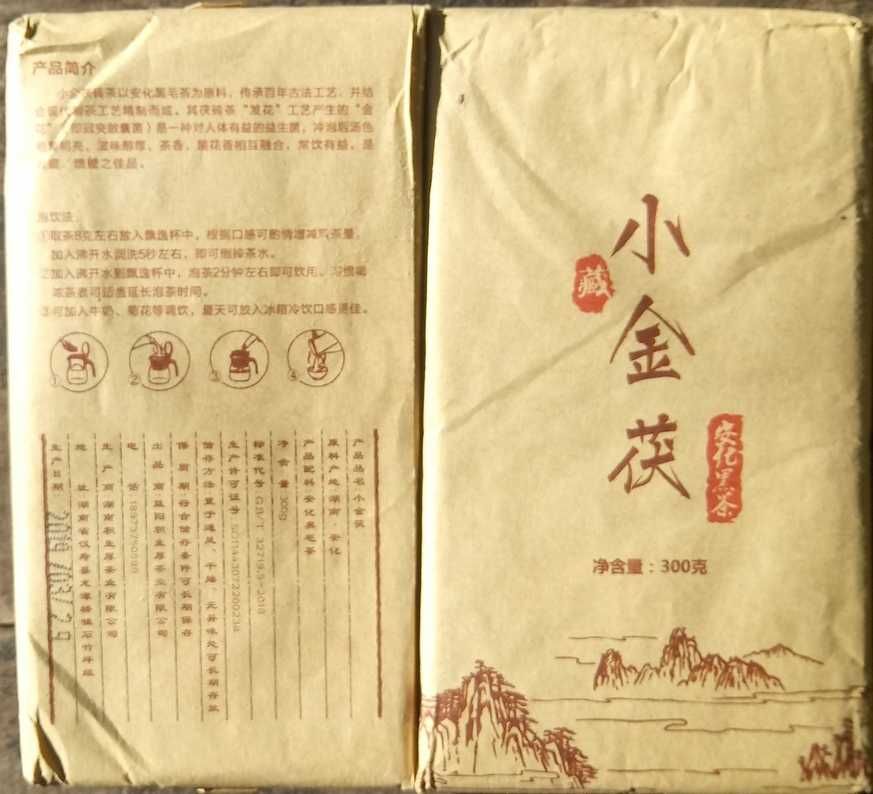 产品简介
小金茯砖茶以安化黑毛茶为原料，传承百年古法工艺，并结
合现代制茶工艺精制而成。其茯砖茶“发花”工艺产生的“金
花”（即冠突散囊菌）是一种对人体有益的益生菌，冲泡后汤色
明亮、滋味醇厚、茶香、菌花香相互融合，常饮有益，是
馈赠之佳品。
泡饮法
①取茶8克左右放入飘逸杯中，根据口感可酌情增减茶量。
加入沸开水润洗5秒左右，即可倒掉茶水。
②加入沸开水到飘逸杯中，泡茶2分钟左右即可饮用。习惯喝
浓茶者可适当延长泡茶时间。
③可加入牛奶、菊花等调饮，夏天可放入冰箱冷饮口感更佳。
① ② ③ ④
产品品名：小金茯
原料产地：湖南·安化
产品配料：安化黑毛茶
净含量：300g
标准代号：GB/T 32719.5-2018
生产许可证号：SC11443072200234
储存方法：置于通风、干燥、无异味处可长期存放
保质期：符合储存条件可长期保存
出品商：益阳积生厚茶业有限公司
电话：18973750598
生产商：湖南积生厚茶业有限公司
地址：湖南省汉寿县龙潭桥镇石竹坪组
生产日期
2019/03/29
小金茯
藏
安化黑茶
净含量：300克